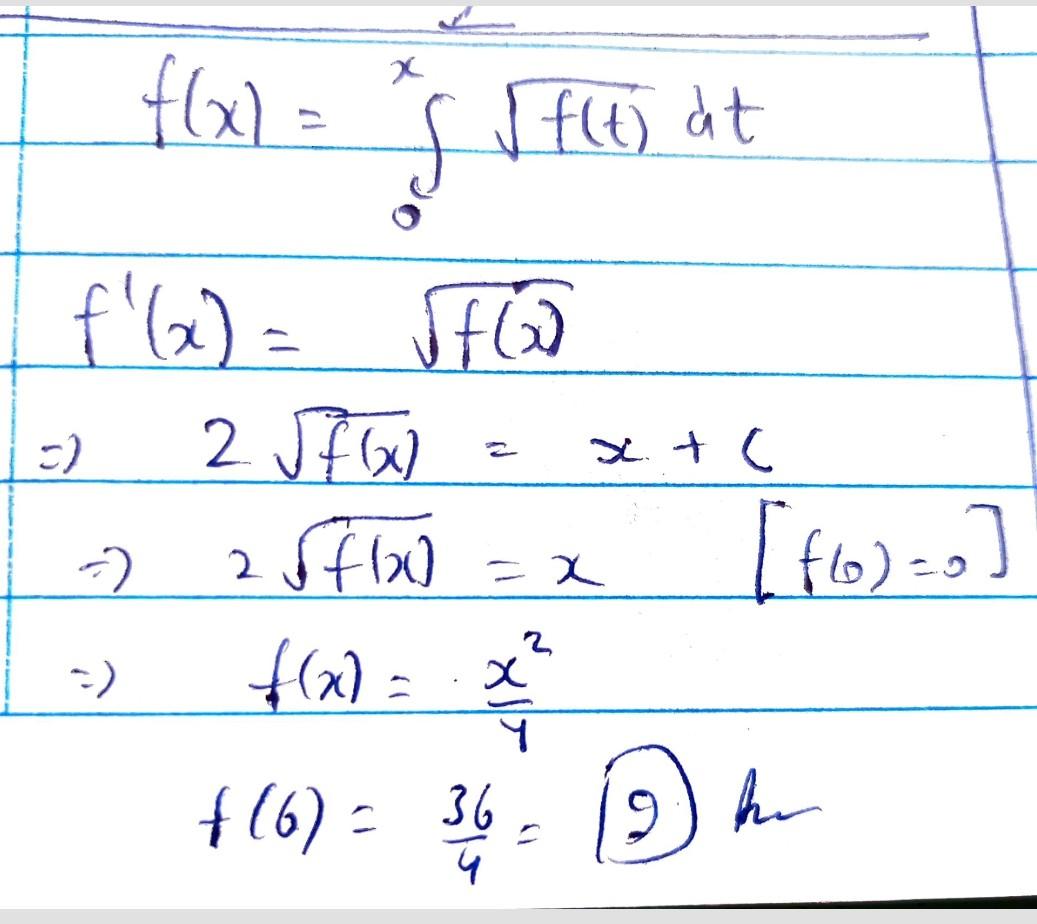 f(x) = ∫₀ˣ √f(t) dt
f'(x) = √f(x)
=> 2 √f(x) = x + c
=> 2 √f(x) = x [f(0)=0]
=> f(x) = x²/4
f(6) = 36/4 = 9 Ans